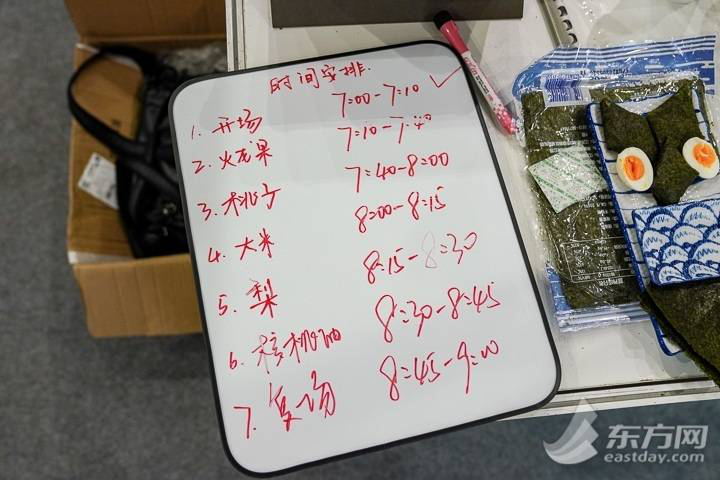 时间安排
1. 开场 7:00-7:10
2. 火龙果 7:10-7:40
3. 桃子 7:40-8:00
4. 大米 8:00-8:15
5. 梨 8:15-8:30
6. 核桃油 8:30-8:45
7. 复场 8:45-9:00
东方网
eastday.com